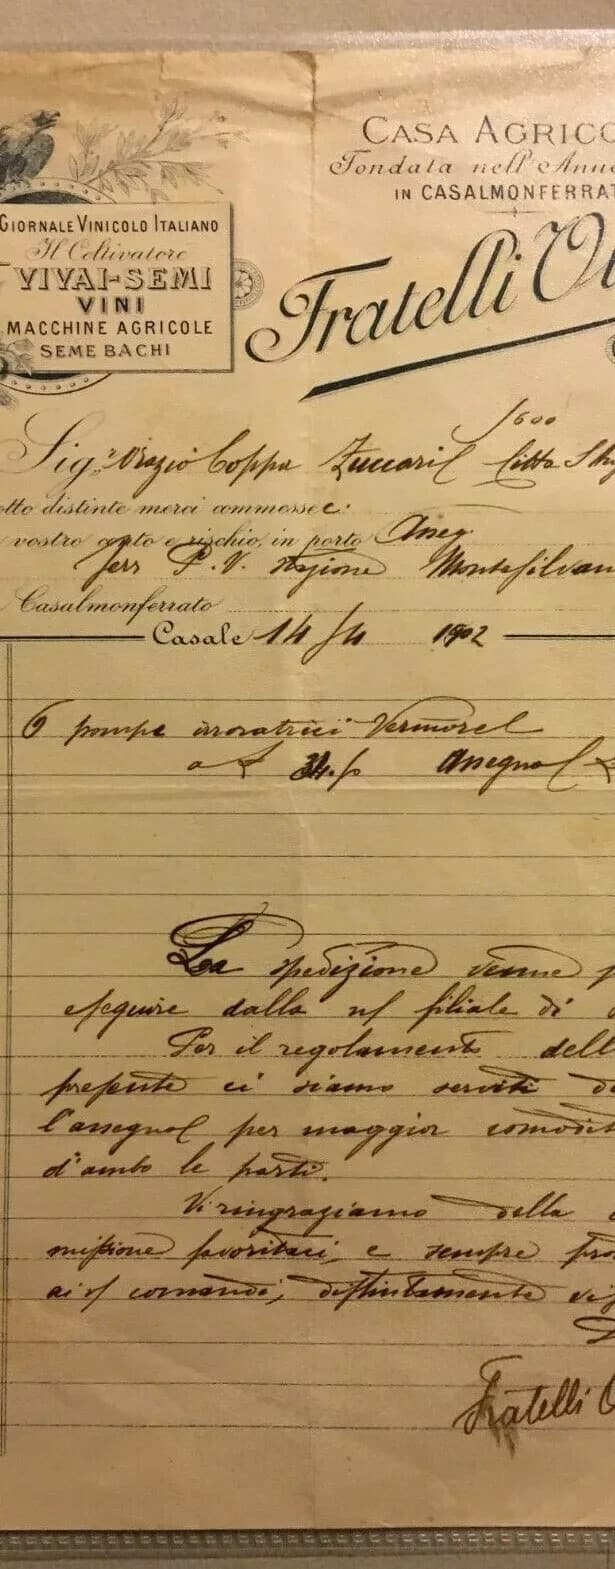 GIORNALE VINICOLO ITALIANO
Il Coltivatore
VIVAI-SEMI
VINI
MACCHINE AGRICOLE
SEME BACHI
CASA AGRICO
Fondata nell'Anno
IN CASALMONFERRAT
Fratelli Ot
1600
Sigr Orazio Coppa Zuccari Città S
otto distinte merci commesse
vostro conto e rischio, in porto Asseg.
ferr P. V. stazione Montesilvan
Casalmonferrato
Casale 14/4 1902
6 pompe irroratrici Vermorel
a £ 34.
La spedizione venne
eseguire dalla n/ filiale di
Per il regolamento dell
presente ci siamo serviti
l'assegno per maggior comodit
d'ambo le parti.
Vi ringraziamo della
missione favoritaci, e sempre pro
ai v/ comandi, distintamente
Fratelli O